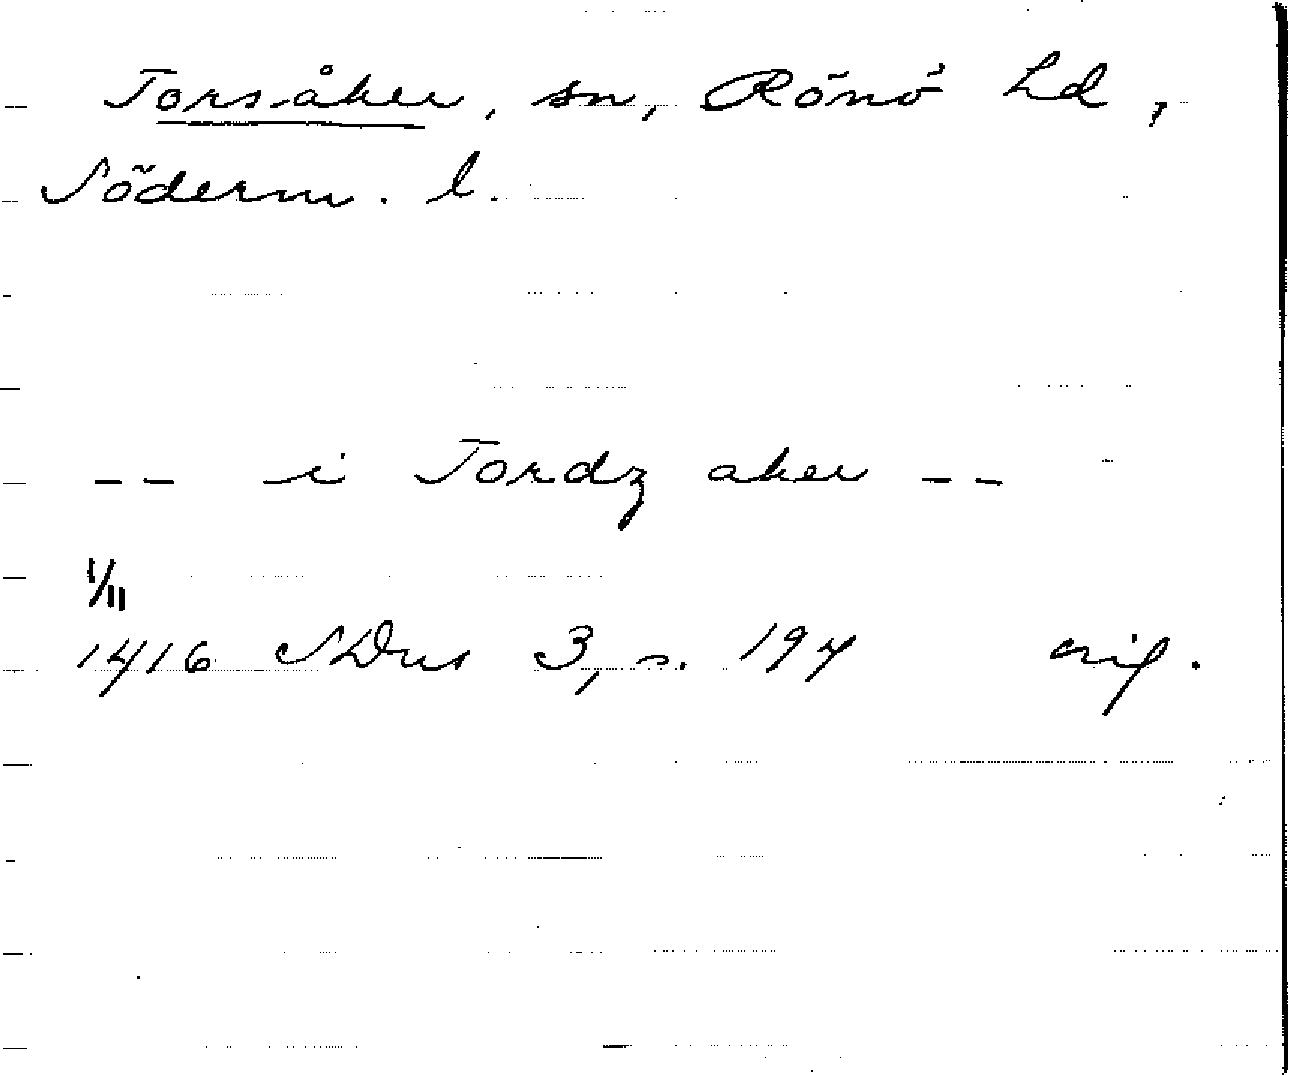 Torsåker, sn, Rönö hd,
Söderm. l.
-- i Tordz aker --
1/11
1416 SDns 3, s. 194 orig.